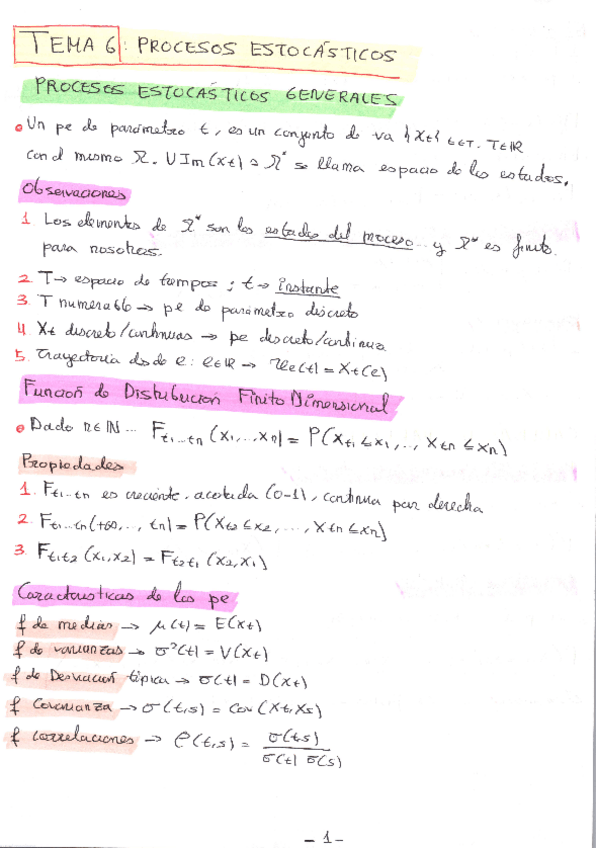 TEMA 6: PROCESOS ESTOCÁSTICOS
PROCESOS ESTOCÁSTICOS GENERALES
• Un pe de parámetro t, es un conjunto de va {Xt} t∈T. T∈ℝ
con el mismo Ω. UIm(Xt) = Ω* se llama espacio de los estados.
Observaciones
1. Los elementos de Ω* son los estados del proceso... y Ω* es finito
para nosotros.
2. T → espacio de tiempos ; t → instante
3. T numerable → pe de parámetro discreto
4. Xt discreto/continuas → pe discreto/continua
5. Trayectoria desde e: e∈ℝ → xe(t) = Xt(e)
Función de Distribución Finito Dimensional
• Dado n∈ℕ... Ft1...tn (x1,...,xn) = P(Xt1 ≤ x1, .., Xtn ≤ xn)
Propiedades
1. Ft1...tn es creciente, acotada (0-1), continua por derecha
2. Ft1...tn(+∞,..., tn) = P(Xt2 ≤ x2, ..., Xtn ≤ xn)
3. Ft1t2 (x1,x2) = Ft2t1 (x2,x1)
Características de los pe
f de medias → μ(t) = E(Xt)
f de varianzas → σ²(t) = V(Xt)
f de Desviación típica → σ(t) = D(Xt)
f Covarianza → σ(t,s) = Cov(Xt,Xs)
f correlaciones → ρ(t,s) = σ(t,s) / σ(t) σ(s)
- 1 -